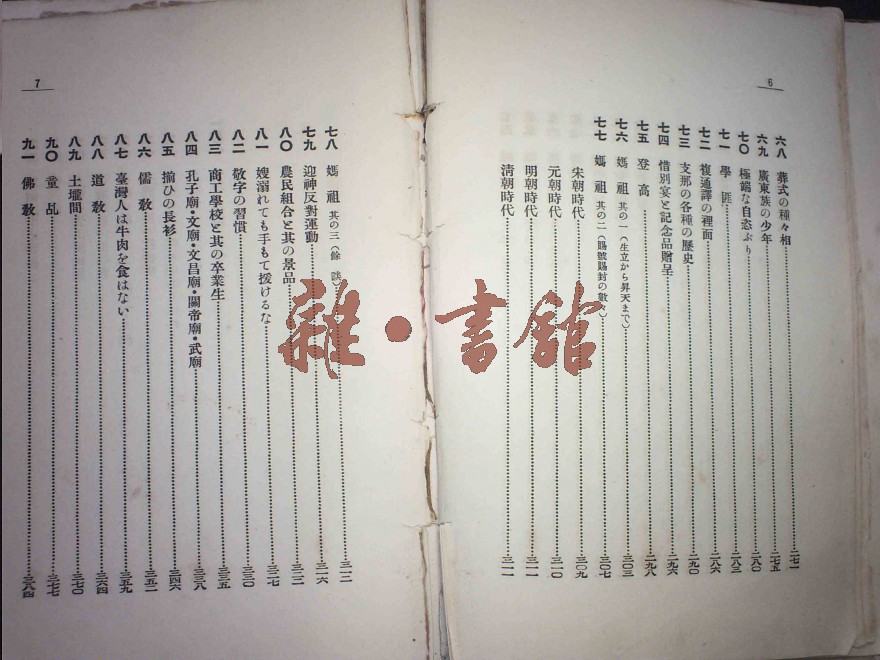 6
六八 葬式の種々相……二七一
六九 廣東族の少年……二七五
七〇 極端な自恣ぶり……二八〇
七一 學匪……二八三
七二 複通譯の裡面……二八六
七三 支那の各種の歷史……二九〇
七四 惜別宴と記念品贈呈……二九六
七五 登高……二九八
七六 媽祖 其の一(生立から昇天まで)……三〇三
七七 媽祖 其の二(賜號賜封の數々)……三〇七
宋朝時代……三〇九
元朝時代……三一〇
明朝時代……三一一
淸朝時代……三一一
7
七八 媽祖 其の三(餘談)……三一二
七九 迎神反對運動……三一六
八〇 農民組合と其の景品……三二二
八一 嫂溺れても手もて援けるな……三二七
八二 敬字の習慣……三三〇
八三 商工學校と其の卒業生……三三五
八四 孔子廟・文廟・文昌廟・關帝廟・武廟……三三八
八五 揃ひの長衫……三四六
八六 儒敎……三五二
八七 臺灣人は牛肉を食はない……三五九
八八 道敎……三六四
八九 土壠間……三七〇
九〇 童乩……三七七
九一 佛敎……三八四
雜・書舘